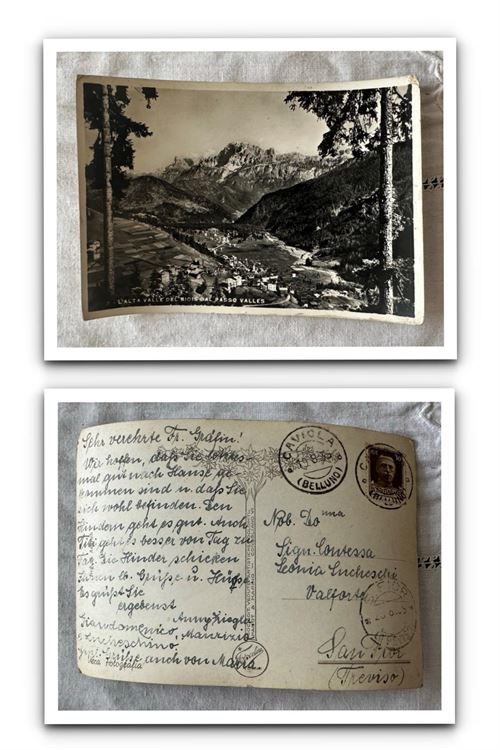 L'ALTA VALLE DEL BIOIS DAL PASSO VALLES
Sehr verehrte Fr. Gräfin!
Wir hoffen, daß Sie
mal gut nach Hause ge
kommen sind u. daß Sie
sich wohl befinden. Den
Kindern geht es gut. Auch
Titi geht es besser von Tag zu
Tag. Die Kinder schicken
lb. Grüße u. Küsse
Es grüßt Sie
ergebenst
Anny
Giandomenico, Maurizio
e Lucheschino
Grüße auch von Maria.
Vera Fotografia
CAVIOLA
(BELLUNO)
Nob. Donna
Sign. Contessa
Leonia Lucheschi
Valforte
San Fior
(Treviso)